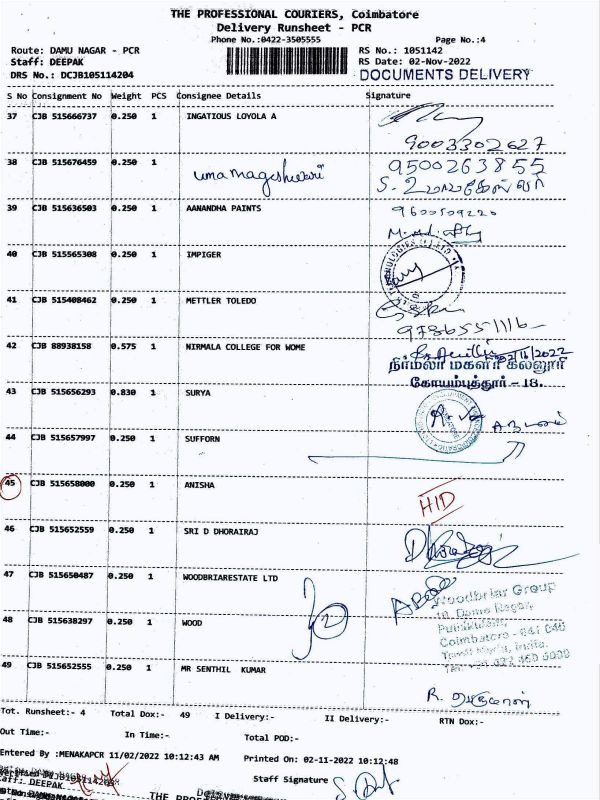 THE PROFESSIONAL COURIERS, Coimbatore
Delivery Runsheet - PCR
Phone No.:0422-3505555 Page No.:4
Route: DAMU NAGAR - PCR RS No.: 1051142
Staff: DEEPAK RS Date: 02-Nov-2022
DRS No.: DCJB105114204 DOCUMENTS DELIVERY
S No Consignment No Weight PCS Consignee Details Signature
37 CJB 515666737 0.250 1 INGATIOUS LOYOLA A
9003302627
38 CJB 515676459 0.250 1 uma mageshwari 9500263855
S. உமாமகேஸ்வரி
39 CJB 515636503 0.250 1 AANANDHA PAINTS 9600509220
40 CJB 515565308 0.250 1 IMPIGER
41 CJB 515408462 0.250 1 METTLER TOLEDO
9786551116
42 CJB 88938158 0.575 1 NIRMALA COLLEGE FOR WOME
நிர்மலா மகளிர் கல்லூரி
கோயம்புத்தூர் - 18.
43 CJB 515656293 0.830 1 SURYA
44 CJB 515657997 0.250 1 SUFFORN
45 CJB 515658000 0.250 1 ANISHA HID
46 CJB 515652559 0.250 1 SRI D DHORAIRAJ
47 CJB 515650487 0.250 1 WOODBRIARESTATE LTD
Woodbriar Group
48 CJB 515638297 0.250 1 WOOD 2
Coimbatore - 641 045
Tamil Nadu, India.
49 CJB 515652555 0.250 1 MR SENTHIL KUMAR
Tot. Runsheet:- 4 Total Dox:- 49 I Delivery:- II Delivery:- RTN Dox:-
Out Time:- In Time:- Total POD:-
Entered By :MENAKAPCR 11/02/2022 10:12:43 AM Printed On: 02-11-2022 10:12:48
Staff Signature